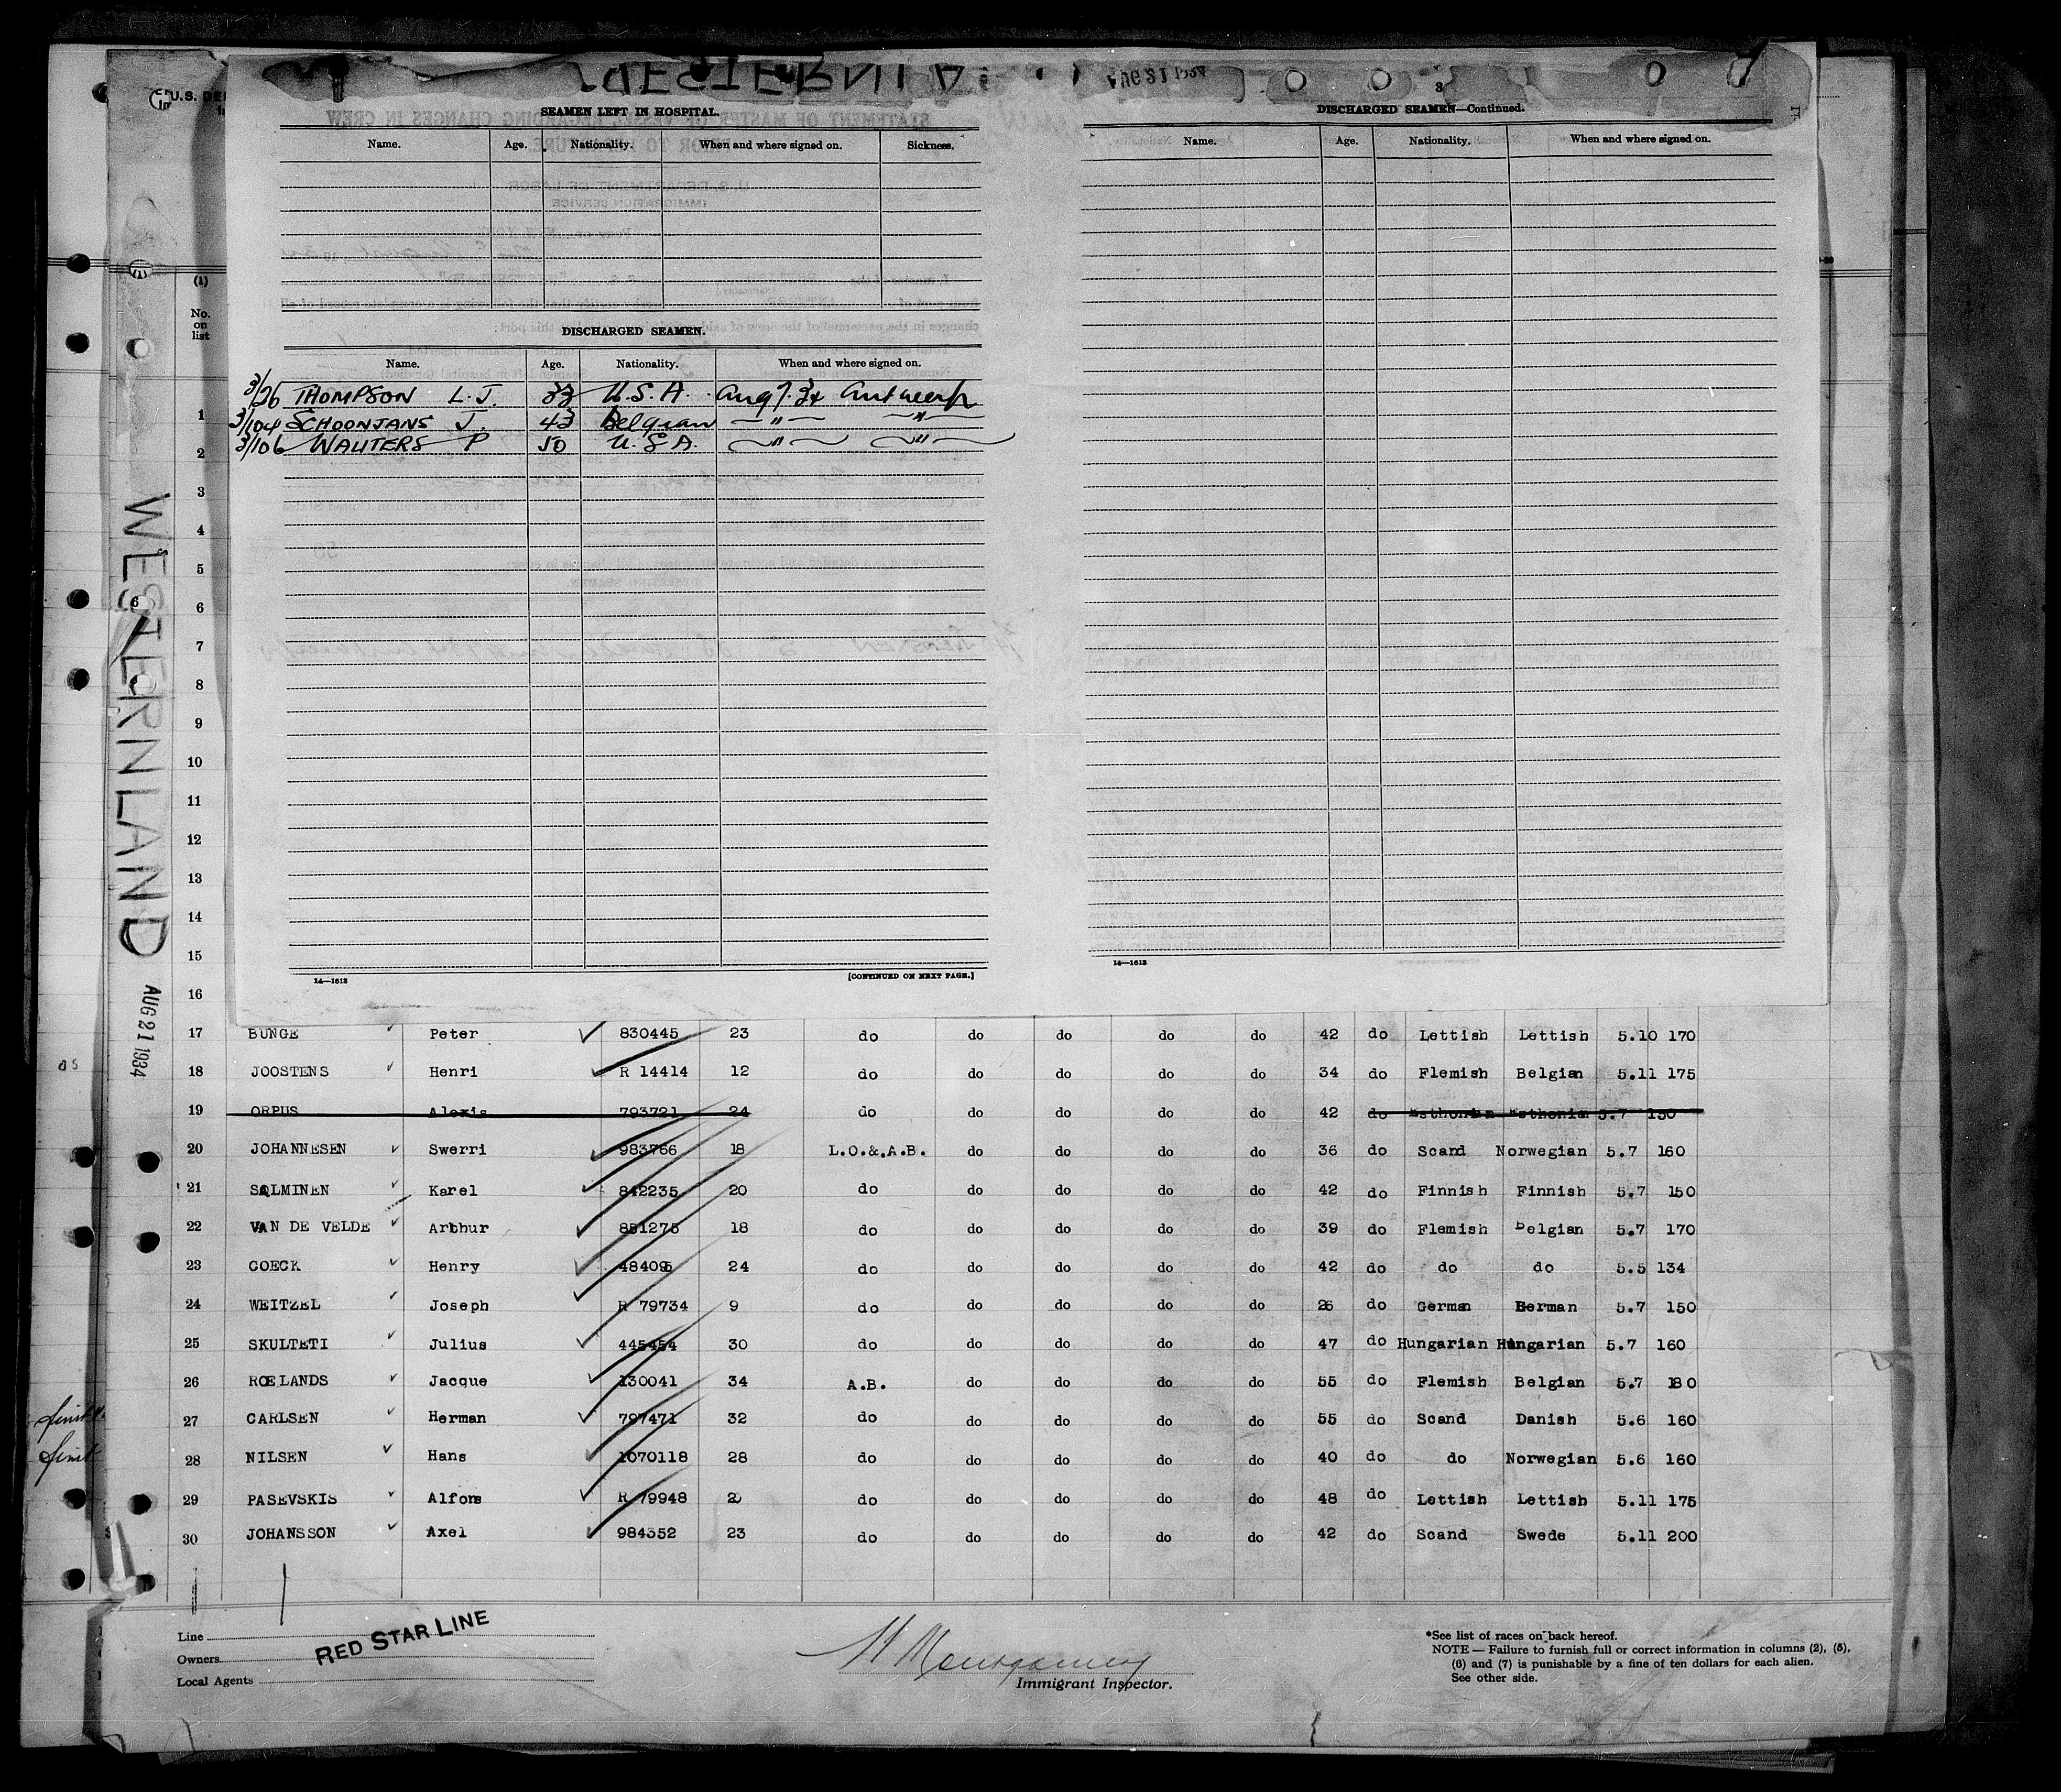 AUG 21 1934
3
SEAMEN LEFT IN HOSPITAL.
Name. Age. Nationality. When and where signed on. Sickness.
DISCHARGED SEAMEN.
Name. Age. Nationality. When and where signed on.
3/26 THOMPSON L.J. 33 U.S.A. Aug 7. 34 Antwerp
3/104 SCHOONJANS J. 43 Belgian " "
3/106 WAUTERS P 50 U.S.A. " "
14—1613
[CONTINUED ON NEXT PAGE.]
DISCHARGED SEAMEN—Continued.
Name. Age. Nationality. When and where signed on.
14—1613
U.S. DE
(1)
No. on list
1
2
3
4
5
6
7
8
9
10
11
12
13
14
15
16
WESTERNLAND
AUG 21 1934
17 BUNGE Peter 830445 23 do do do do do 42 do Lettish Lettish 5.10 170
18 JOOSTENS Henri R 14414 12 do do do do do 34 do Flemish Belgian 5.11 175
19 ORPUS Alexis 793721 24 do do do do do 42 do Esthonian Esthonian 5.7 150
20 JOHANNESEN Swerri 983766 18 L.O.&.A.B. do do do do 36 do Scand Norwegian 5.7 160
21 SALMINEN Karel 842235 20 do do do do do 42 do Finnish Finnish 5.7 150
22 VAN DE VELDE Arthur 851275 18 do do do do do 39 do Flemish Belgian 5.7 170
23 COECK Henry 484095 24 do do do do do 42 do do do 5.5 134
24 WEITZEL Joseph R 79734 9 do do do do do 26 do German German 5.7 150
25 SKULTETI Julius 445454 30 do do do do do 47 do Hungarian Hungarian 5.7 160
26 ROELANDS Jacque 130041 34 A.B. do do do do 55 do Flemish Belgian 5.7 180
27 CARLSEN Herman 797471 32 do do do do do 55 do Scand Danish 5.6 160
28 NILSEN Hans 1070118 28 do do do do do 40 do do Norwegian 5.6 160
29 PASEVSKIS Alfons R 79948 20 do do do do do 48 do Lettish Lettish 5.11 175
30 JOHANSSON Axel 984352 23 do do do do do 42 do Scand Swede 5.11 200
Line
Owners
Local Agents
RED STAR LINE
H Montgomery
Immigrant Inspector.
*See list of races on back hereof.
NOTE — Failure to furnish full or correct information in columns (2), (5),
(6) and (7) is punishable by a fine of ten dollars for each alien.
See other side.